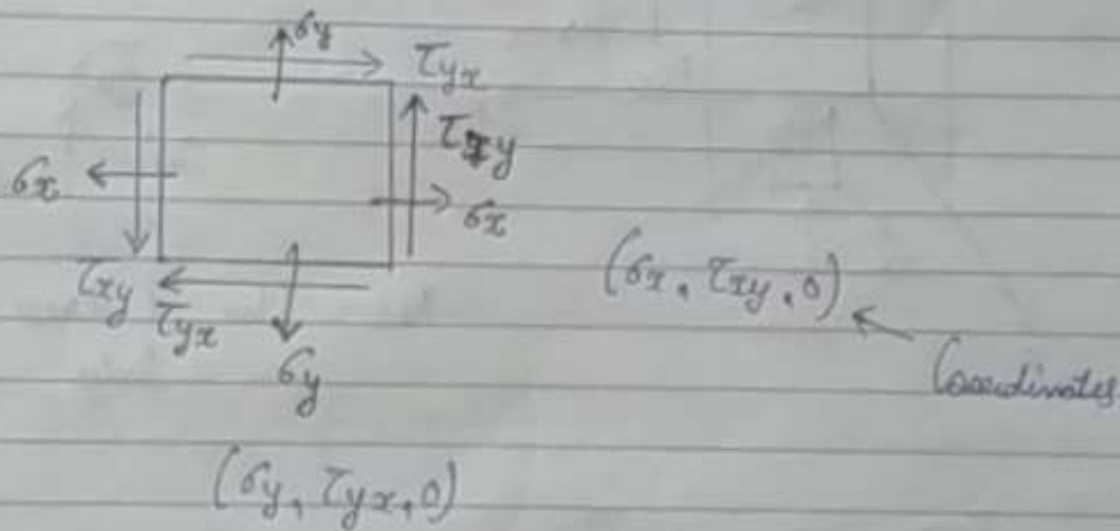 σy
τyx
τxy
σx
σx
τxy
τyx
σy
(σx, τxy, 0)
Coordinates
(σy, τyx, 0)